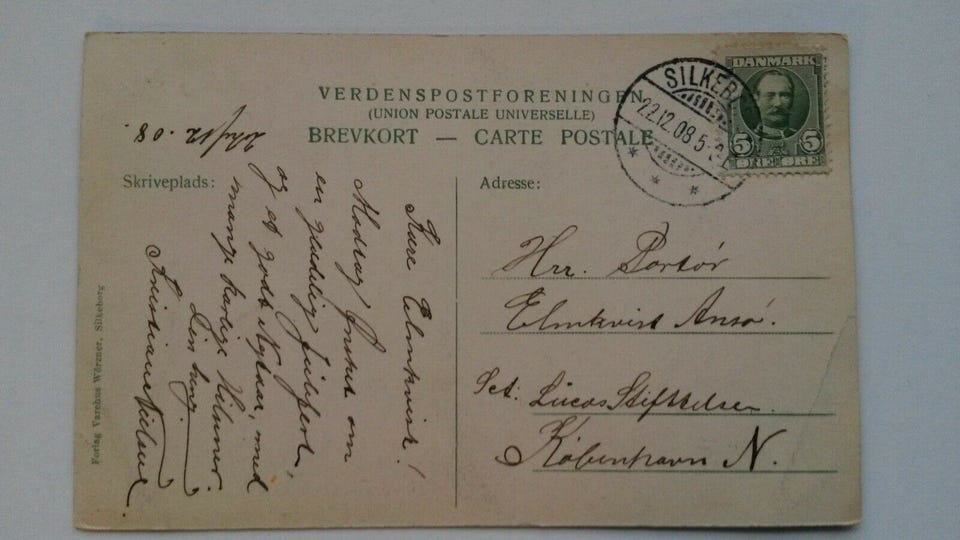 VERDENSPOSTFORENINGEN
(UNION POSTALE UNIVERSELLE)
BREVKORT — CARTE POSTALE
DANMARK
5 5
ØRE ØRE
SILKEB
22.12.08 5-
Skriveplads:
Adresse:
12.08.
Kære Elmkvist!
Modtag Ønsket om
en glædelig Julefest,
og et godt Nytaar, med
mange kærlige Hilsner
Din
Kristiane Nielsen.
Hrr. Portør
Elmkvist Ansø.
Sct. Lucas Stiftelsen.
København N.
Forlag Varehus Wörzner, Silkeborg